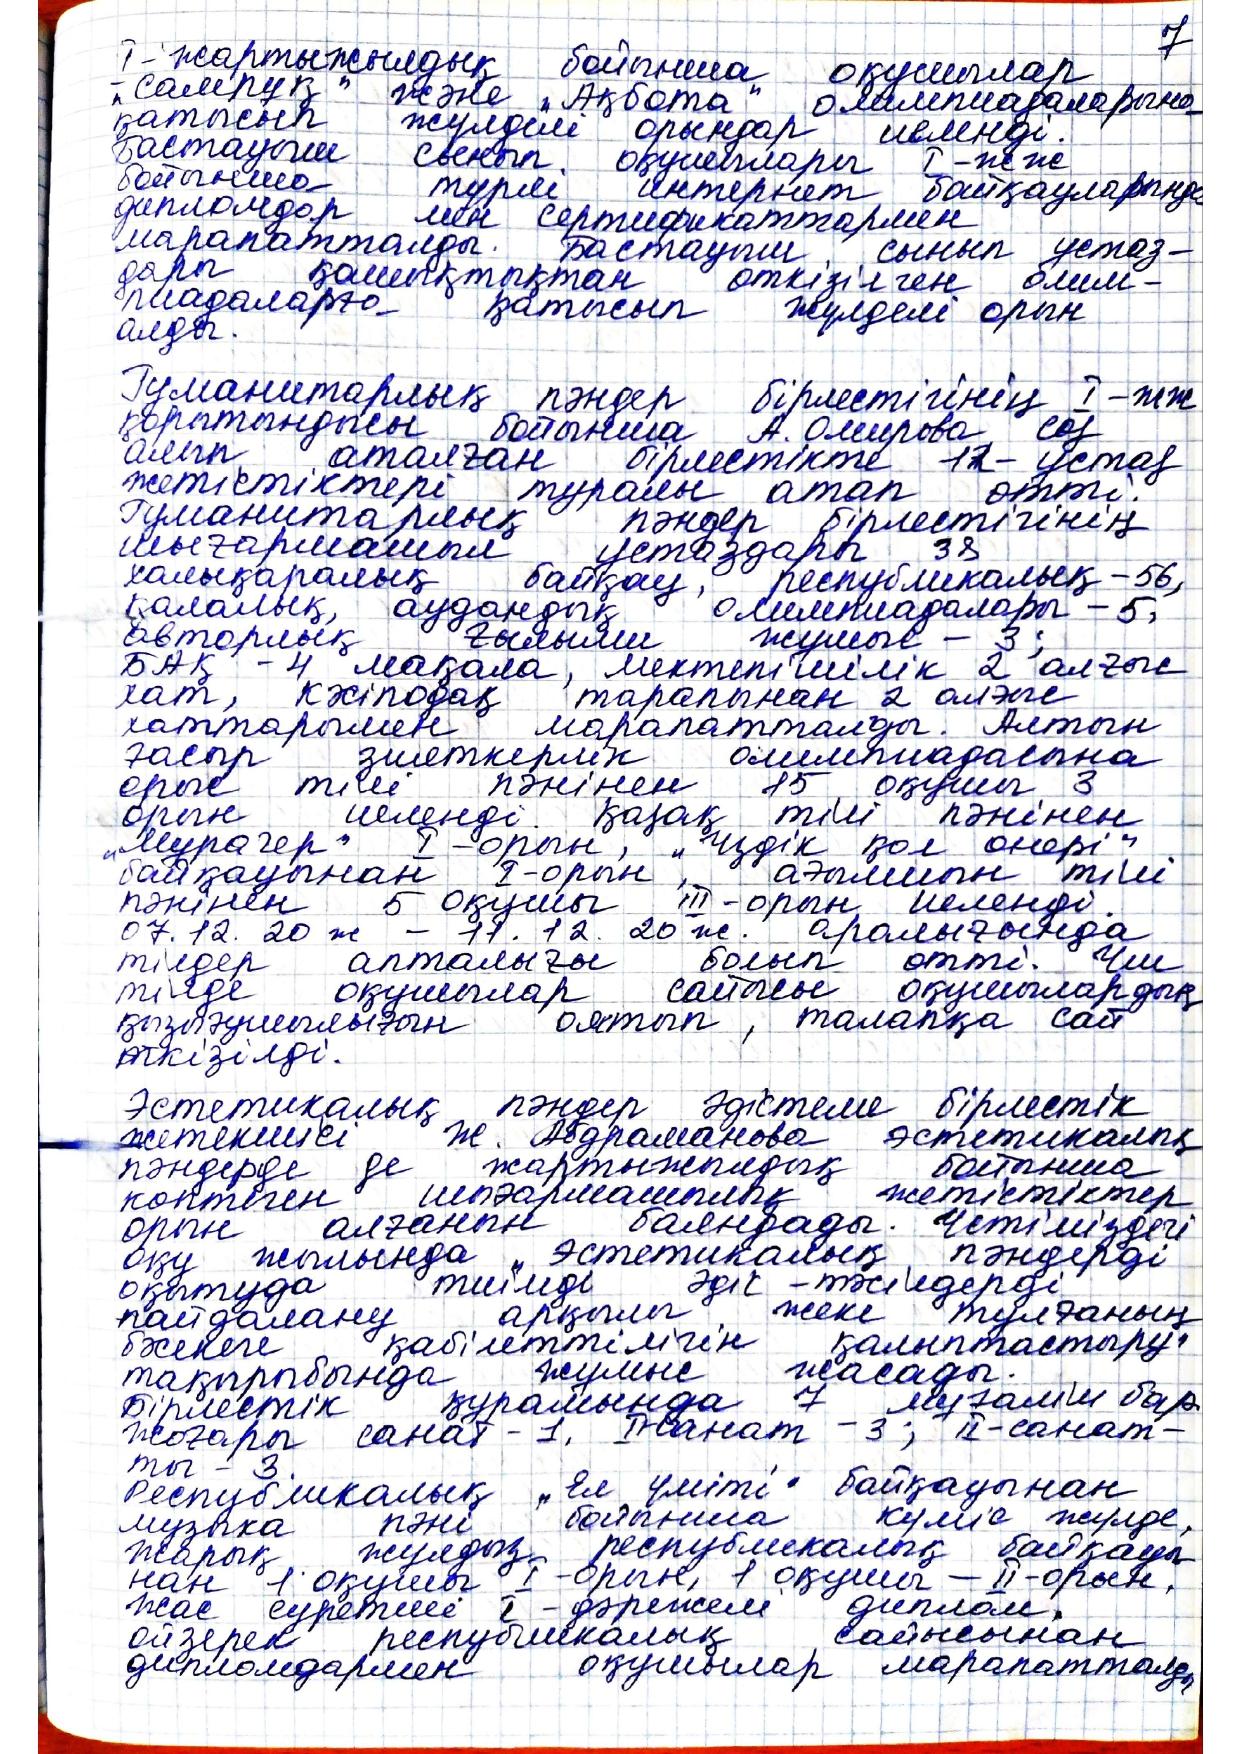 7
I-жартыжылдық бойынша оқушылар
"Самұрұқ" және "Ақбота" олимпиадаларына
қатысып жүлделі орындар иеленді.
Бастауыш сынып оқушылары I-жж
бойынша түрлі интернет байқауларында
дипломдар мен сертификаттармен
марапатталды. Бастауыш сынып ұстаз-
дары қашықтықтан өткізілген олим-
пиадаларға қатысып жүлделі орын
алды.
Гуманитарлық пәндер бірлестігінің I-жж
қорытындысы бойынша А. Омирова сөз
алып аталған бірлестікте 12-ұстаз
жетістіктері туралы атап өтті.
Гуманитарлық пәндер бірлестігінің
шығармашыл ұстаздары 38
халықаралық байқау, республикалық -56,
қалалық, аудандық олимпиадалары -5,
авторлық ғылыми жұмыс - 3;
БАҚ -4 мақала, мектепішілік 2 алғыс
хат, Кәсіподақ тарапынан 2 алғыс
хаттарымен марапатталды. Алтын
ғасыр зияткерлік олимпиадасына
орыс тілі пәнінен 15 оқушы 3
орын иеленді. Қазақ тілі пәнінен
"Мұрагер" I-орын, "Үздік қол өнері"
байқауынан I-орын, ағылшын тілі
пәнінен 5 оқушы III-орын иеленді.
07.12.20ж - 11.12.20ж. аралығында
тілдер апталығы болып өтті. Үш
тілде оқушылар сайысы оқушылардың
қызығушылығын оятып, талапқа сай
өткізілді.
Эстетикалық пәндер әдістеме бірлестік
жетекшісі Ж. Абдраманова эстетикалық
пәндерде де жартыжылдық бойынша
көптеген шығармашылық жетістіктер
орын алғанын баяндады. Үстіміздегі
оқу жылында "Эстетикалық пәндерді
оқытуда тиімді әдіс-тәсілдерді
пайдалану арқылы жеке тұлғаның
бәсекеге қабілеттілігін қалыптастыру"
тақырыбында жұмыс жасады.
Бірлестік құрамында 7 мұғалім бар.
Жоғары санат -1, I-санат -3; II-санат-
ты - 3.
Республикалық "Ел үміті" байқауынан
музыка пәні бойынша күміс жүлде,
жарық жұлдыз республикалық байқауы
нан 1 оқушы I-орын, 1 оқушы - II-орын,
жас суретші I-дәрежелі диплом,
ойзерек республикалық сайысынан
дипломдармен оқушылар марапатталды